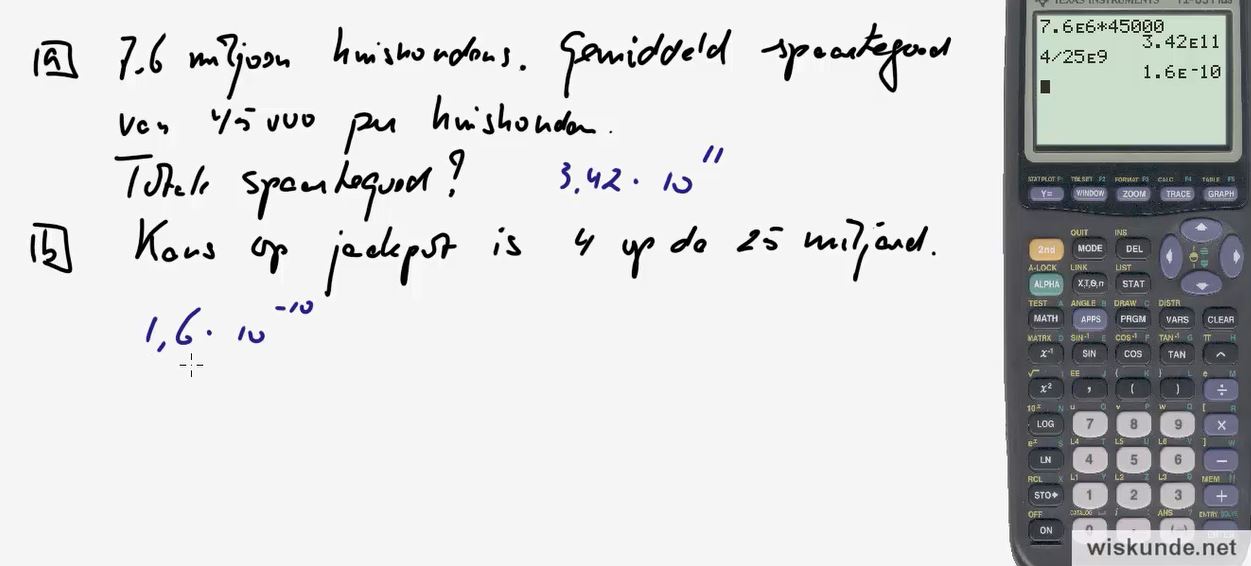 a 7.6 miljoen huishoudens. Gemiddeld spaartegoed
van 45000 per huishouden.
Totale spaartegoed? 3.42 · 10^11
b Kans op jackpot is 4 op de 25 miljard.
1,6 · 10^-10
TEXAS INSTRUMENTS TI-83 Plus
7.6E6*45000
3.42E11
4/25E9
1.6E-10
STAT PLOT F1 TBLSET F2 FORMAT F3 CALC F4 TABLE F5
Y= WINDOW ZOOM TRACE GRAPH
QUIT INS
2nd MODE DEL
A-LOCK LINK LIST
ALPHA X,T,Θ,n STAT
TEST A ANGLE B DRAW C DISTR
MATH APPS PRGM VARS CLEAR
MATRX D SIN-1 E COS-1 F TAN-1 G π H
x-1 SIN COS TAN ^
√ I EE J { K } L e M
x² , ( ) ÷
10x N u O v P w Q [ R
LOG 7 8 9 ×
ex S L4 T L5 U L6 V ] W
LN 4 5 6 −
RCL X L1 Y L2 Z L3 θ MEM "
STO▸ 1 2 3 +
OFF CATALOG i ANS ? ENTRY SOLVE
ON 0 . (-) ENTER
wiskunde.net